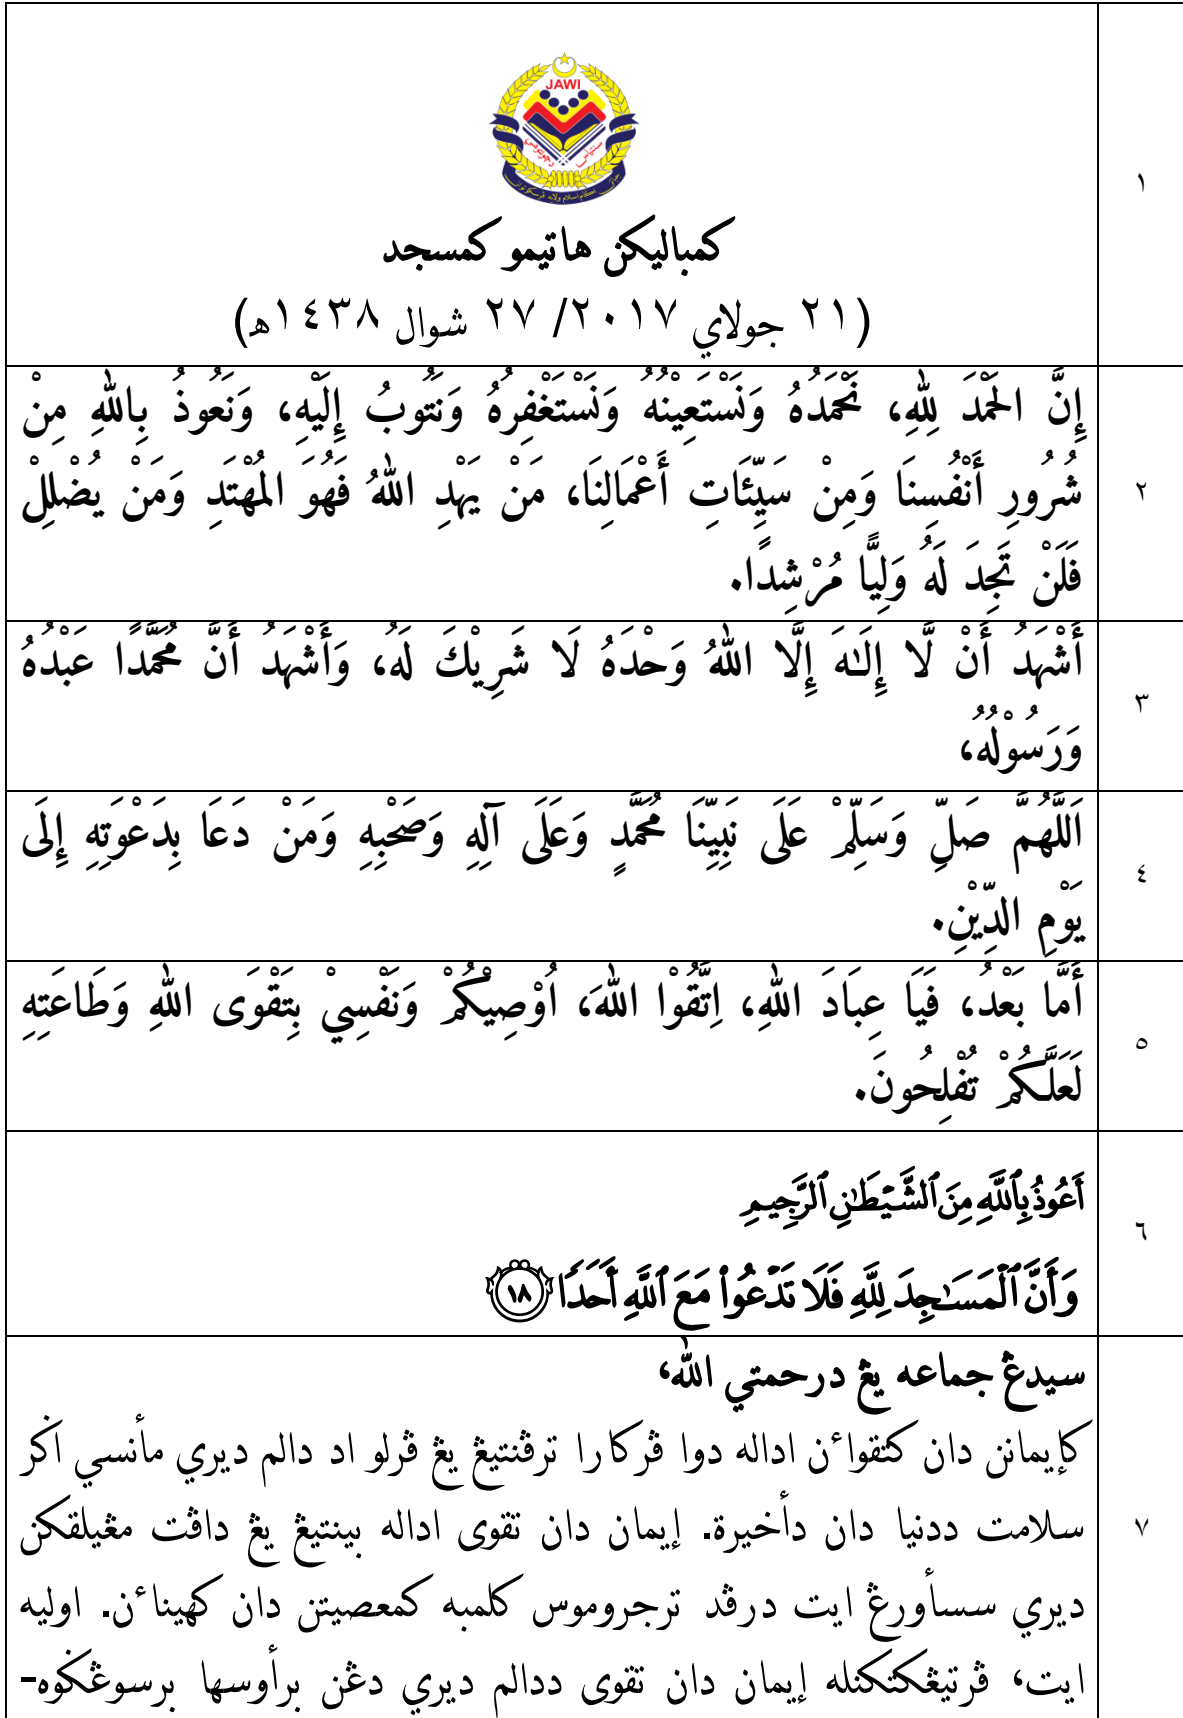 JAWI
كمباليكن هاتيمو كمسجد
(٢١ جولاي ٢٠١٧/ ٢٧ شوال ١٤٣٨ه)
١
إِنَّ الحَمْدَ لِلّٰهِ، نَحْمَدُهُ وَنَسْتَعِيْنُهُ وَنَسْتَغْفِرُهُ وَنَتُوبُ إِلَيْهِ، وَنَعُوذُ بِاللّٰهِ مِنْ
شُرُورِ أَنْفُسِنَا وَمِنْ سَيِّئَاتِ أَعْمَالِنَا، مَنْ يَهْدِ اللّٰهُ فَهُوَ المُهْتَدِ وَمَنْ يُضْلِلْ
فَلَنْ تَجِدَ لَهُ وَلِيًّا مُرْشِدًا.
٢
أَشْهَدُ أَنْ لَّا إِلَـٰهَ إِلَّا اللّٰهُ وَحْدَهُ لَا شَرِيْكَ لَهُ، وَأَشْهَدُ أَنَّ مُحَمَّدًا عَبْدُهُ
وَرَسُوْلُهُ،
٣
اَللّٰهُمَّ صَلِّ وَسَلِّمْ عَلَى نَبِيِّنَا مُحَمَّدٍ وَعَلَى آلِهِ وَصَحْبِهِ وَمَنْ دَعَا بِدَعْوَتِهِ إِلَى
يَوْمِ الدِّيْنِ.
٤
أَمَّا بَعْدُ، فَيَا عِبَادَ اللّٰهِ، اِتَّقُوْا اللّٰهَ، أُوْصِيْكُمْ وَنَفْسِيْ بِتَقْوَى اللّٰهِ وَطَاعَتِهِ
لَعَلَّكُمْ تُفْلِحُونَ.
٥
أَعُوذُ بِٱللَّهِ مِنَ ٱلشَّيْطَٰنِ ٱلرَّجِيمِ
وَأَنَّ ٱلْمَسَٰجِدَ لِلَّهِ فَلَا تَدْعُوا۟ مَعَ ٱللَّهِ أَحَدًا ١٨
٦
سيدڠ جماعه يڠ درحمتي الله،
كإيمانن دان كتقواءن اداله دوا ڤركارا ترڤنتيڠ يڠ ڤرلو اد دالم ديري مأنسي اݢر
سلامت ددنيا دان دأخيرة. إيمان دان تقوى اداله بينتيڠ يڠ داڤت مڠيلقكن
ديري سسأورڠ ايت درڤد ترجروموس كلمبه كمعصيتن دان كهيناءن. اوليه
ايت، ڤرتيڠكتكنله إيمان دان تقوى ددالم ديري دڠن برأوسها برسوڠݢوه-
٧